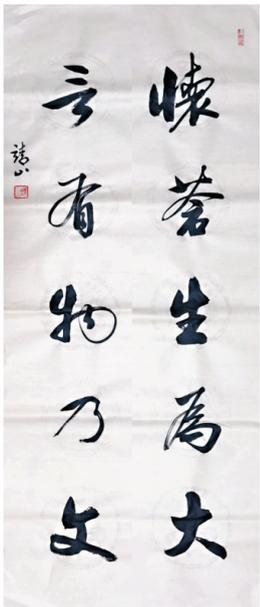 懐蒼生為大
言有物乃文
靖山